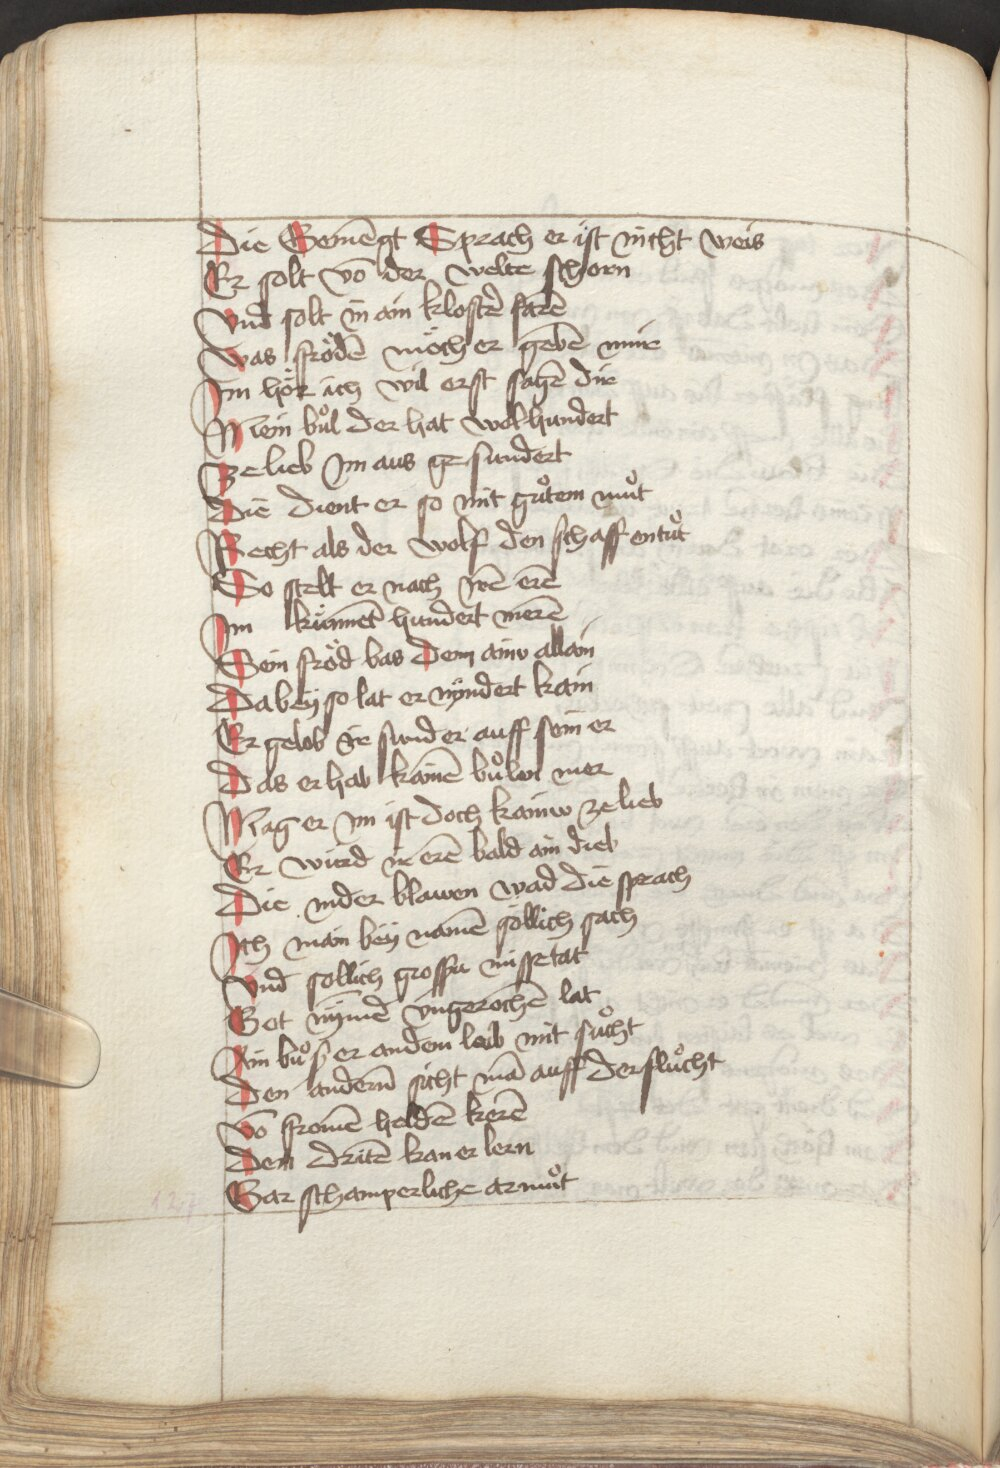 Die Gemēgt Sprach er ist nicht weis
Er solt vō der welte schorn
Vnd solt in ain klostr̄ farē
Was frödē möch er gebē mir
Im hör ich wil erst sagē dir
Mein bůl der hat wol hundert
Ze lieb Im aus gesundert
Die dient er so mit gůtem můt
Recht als der wolf den schaffen tůt
So stelt er nach irē erē
Im künnet hundert merē
Sein fröd bas dem ainv allain
Da bey so lat er nÿndert kain
Er gelob Ir sunder auff sein er
Das er hab kainē bůlen mer
Mag er im ist doch kainv ze lieb
Er wird ir erē bald ain dieb
Die inder blawen wad die sprach
Ich main bey namē söllich sach
Vnd sollich grossu missetat
Got nÿmēd vngerochē lat
Ain bůst er an dem leib mit sůcht
Den andern̄ sicht mā auff der flůcht
Vō fromē heldē kerē
Dem dritē kan er lern
Gar schamperliche armůt